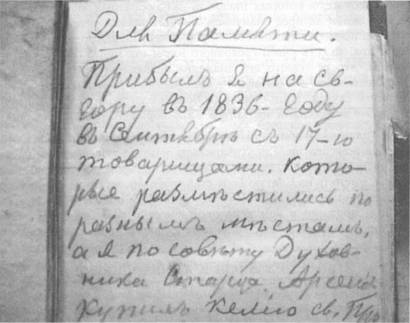 Для Памяти.
Прибылъ я на св-
Гору въ 1836- Году
въ Сентябрѣ съ 17-ю
товарищами. Кото-
рые размѣстились по
разнымъ мѣстамъ,
а я по совѣту Духов-
ника Старца Арсенія
Купилъ Келію св. Про